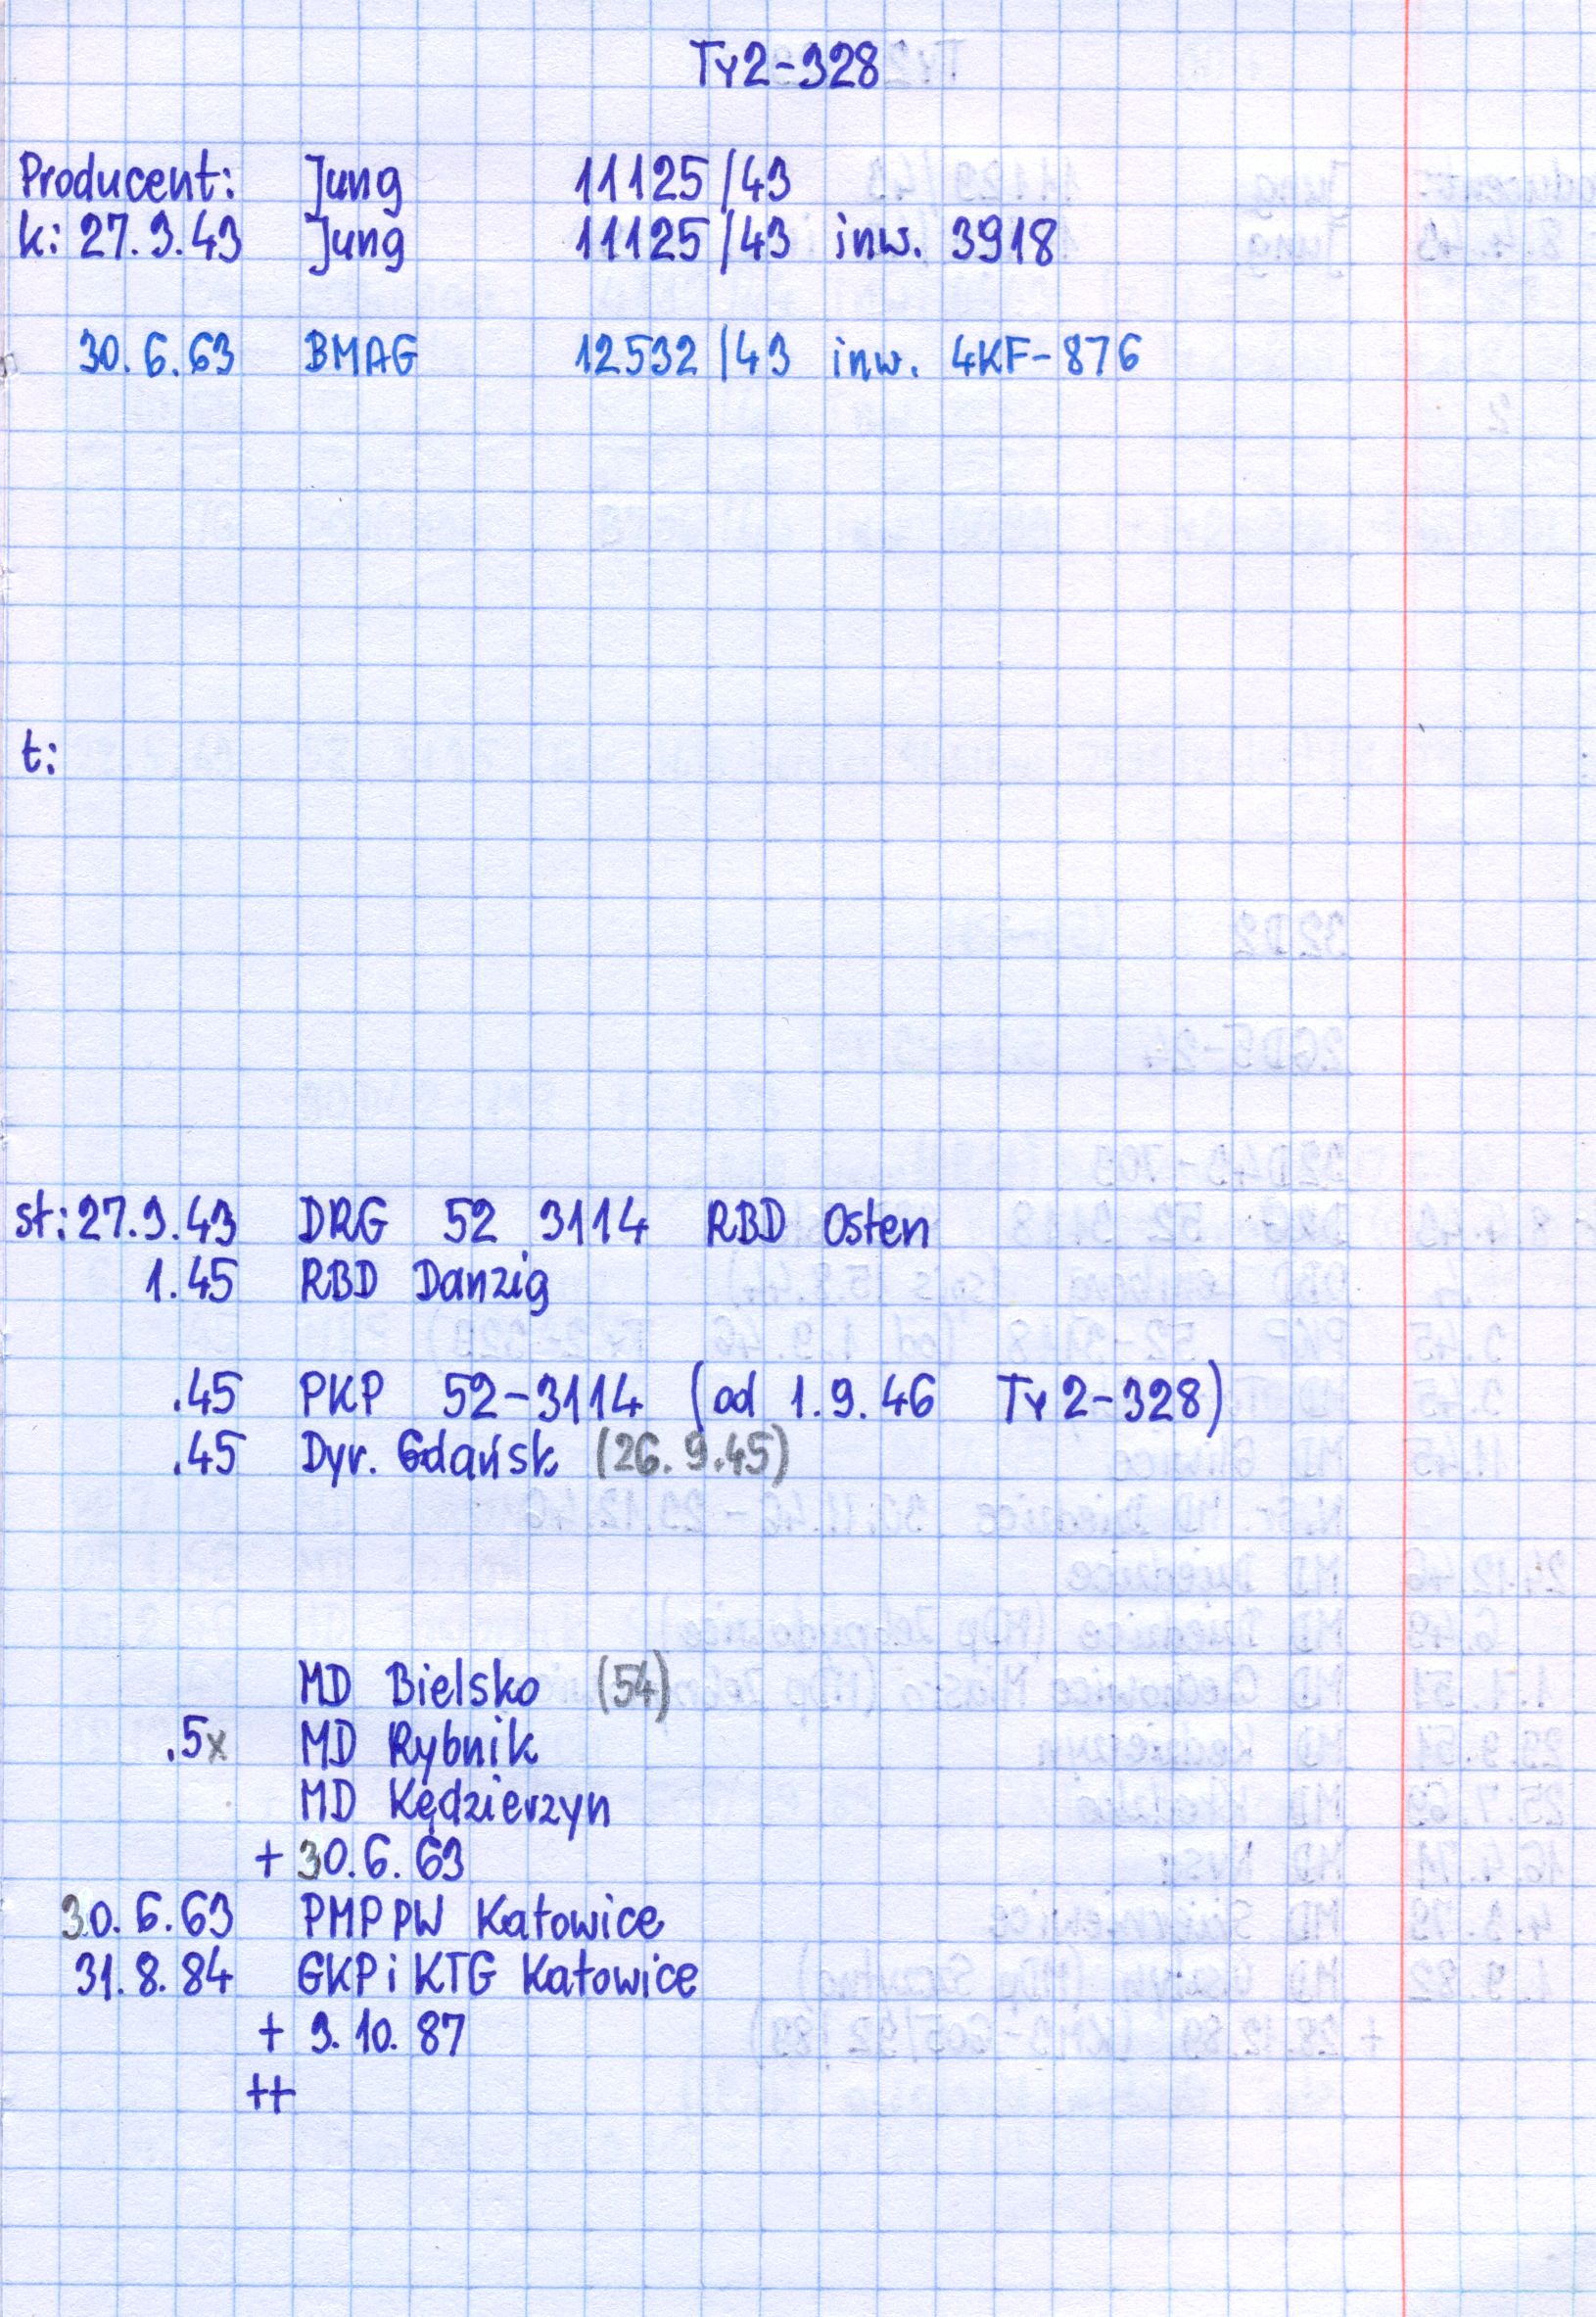 Ty2-328
Producent: Jung 11125/43
k: 27.3.43 Jung 11125/43 inw. 3918
30.6.63 BMAG 12532/43 inw. 4KF-876
t:
st: 27.3.43 DRG 52 3114 RBD Osten
1.45 RBD Danzig
.45 PKP 52-3114 (od 1.9.46 Ty2-328)
.45 Dyr. Gdańsk (26.9.45)
MD Bielsko (54)
.5x MD Rybnik
MD Kędzierzyn
+ 30.6.63
30.6.63 PMPPW Katowice
31.8.84 GKPiKTG Katowice
+ 9.10.87
++